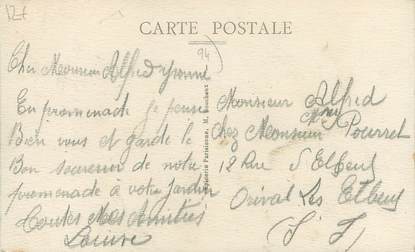 12€
CARTE POSTALE
94
Cher Monsieur Alfred Yvonne
En promenade je pense
Bien vous et garde le
Bon souvenir de notre
promenade à votre jardin
Toutes Mes Amitiés
Louise
Parisienne, M.
Monsieur Alfred
Chez Monsieur Pourret
12 Rue d Elbeuf
Orival Les Elbeuf
(S I)